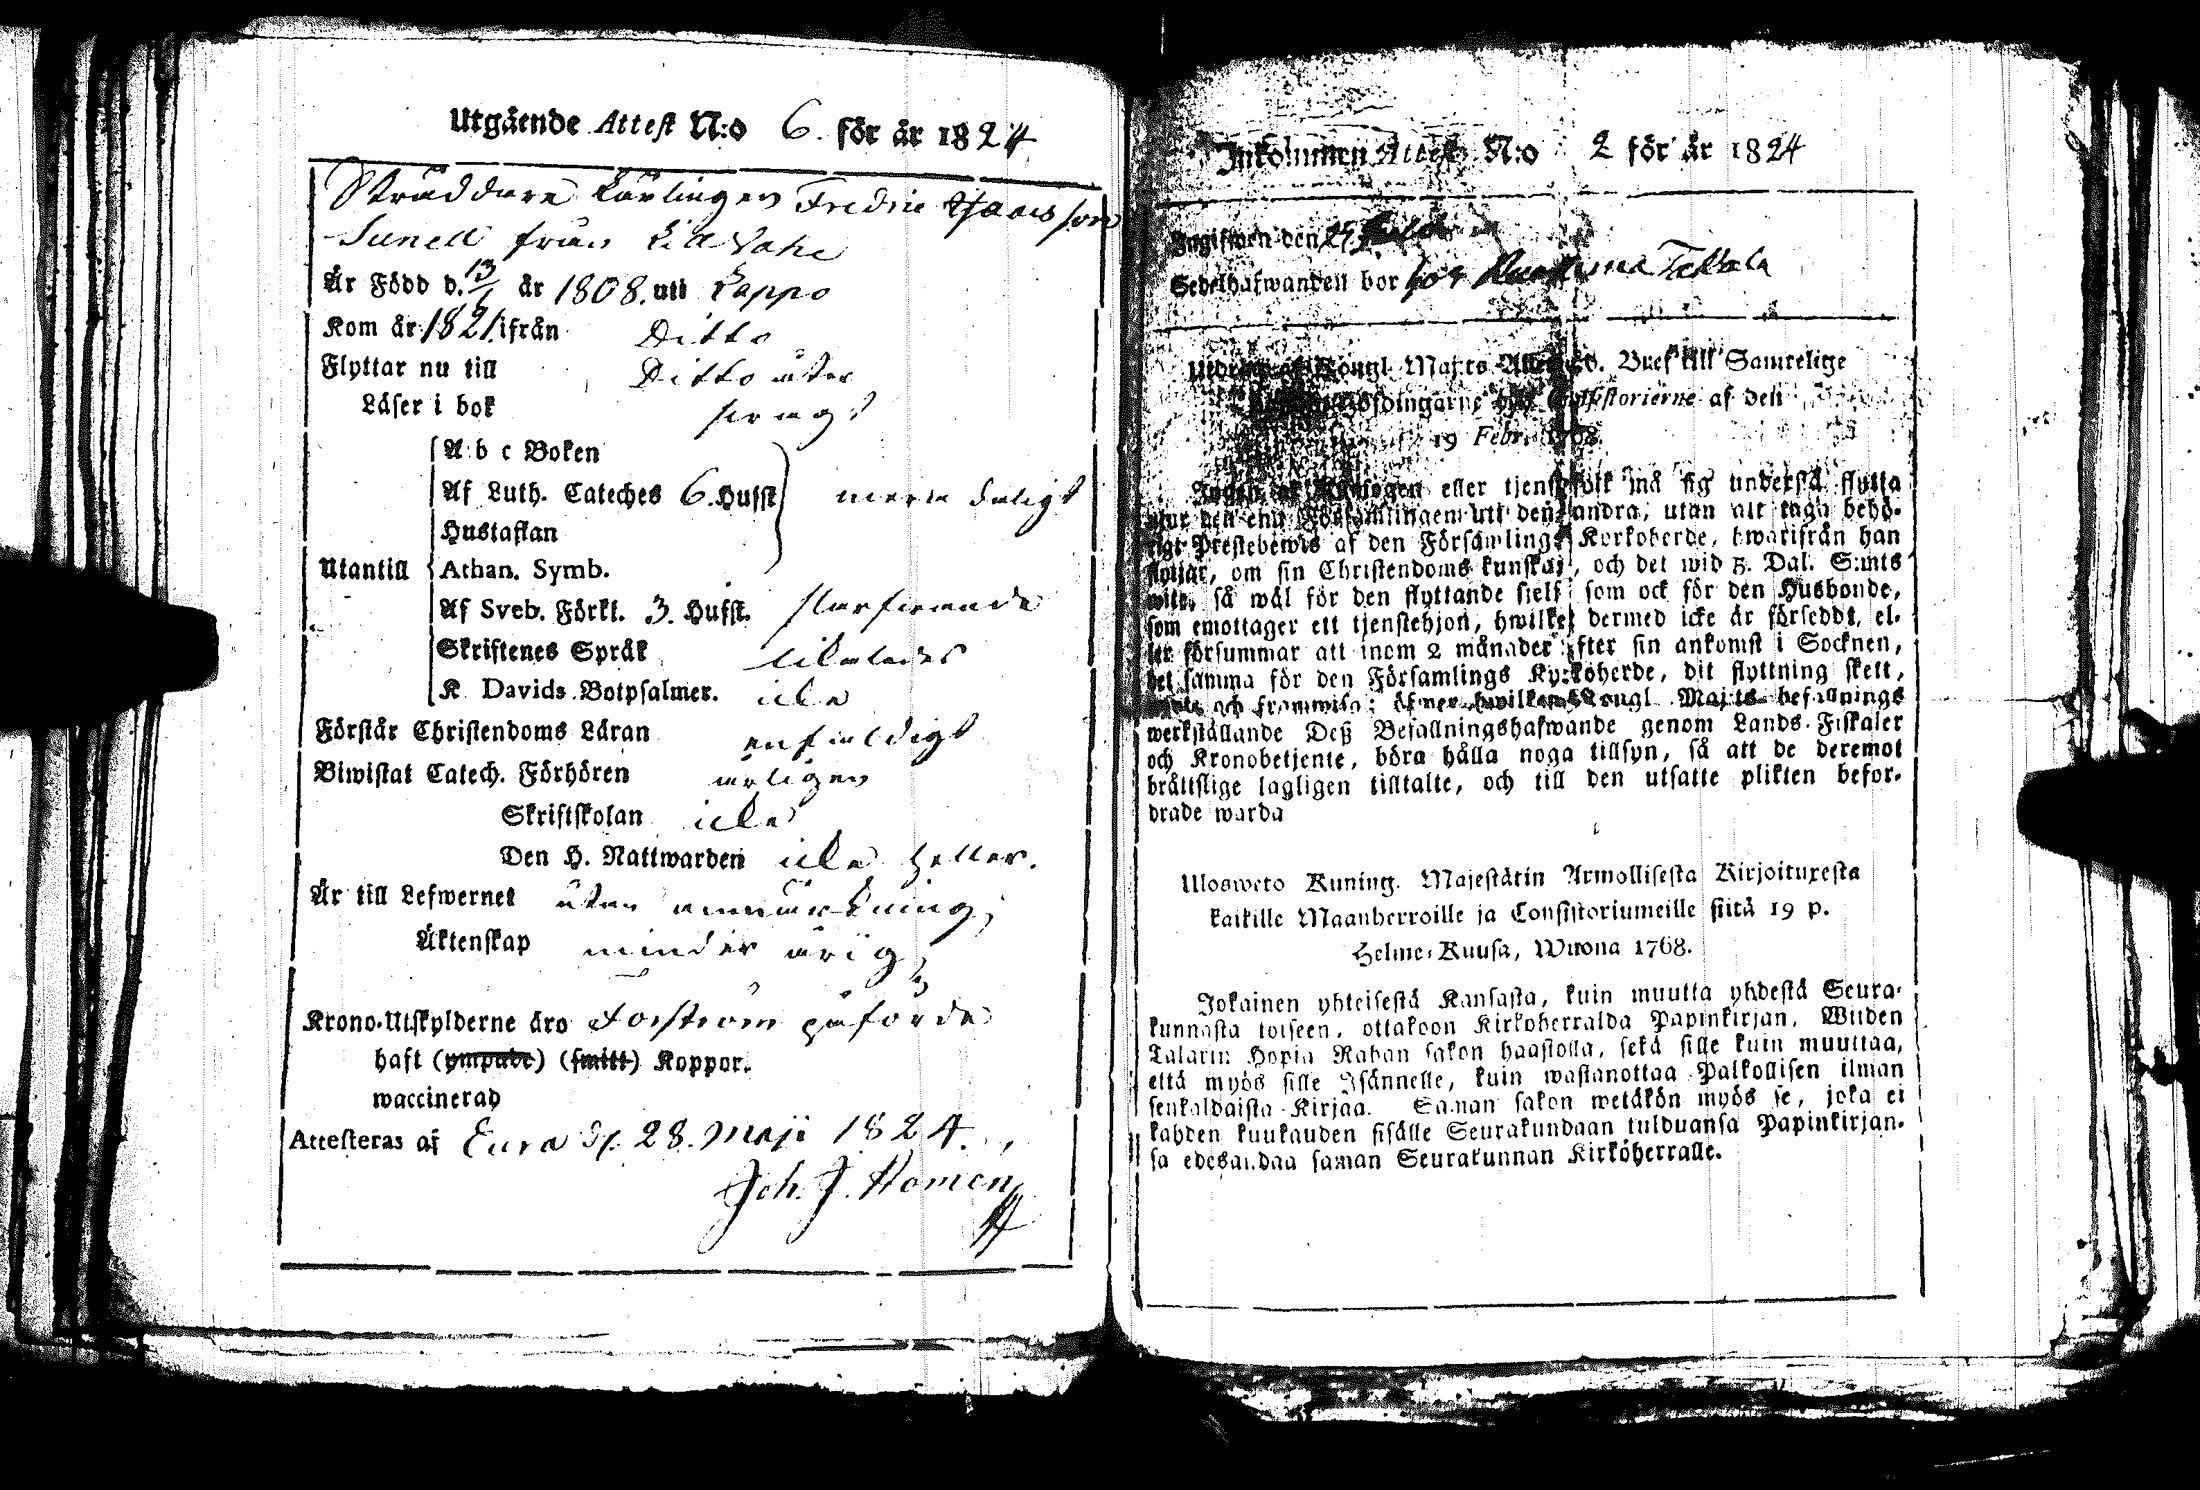 Utgående Attest N:o 6. för år 1824
Skräddare Lärlingen Fredric Isaacsson
Sunell från
Är Född d. 13/1 år 1808. uti Lappo
Kom år 1821. ifrån Ditto
Flyttar nu till Ditto åter
Läser i bok svagt
A b c Boken
Af Luth. Cateches 6. Hufst mera daligt
Hustaflan
Utantill Athan. Symb.
Af Sveb. Förkl. 3. Hufst.
Skriftenes Språk likaledes
K. Davids Botpsalmer. icke
Förstår Christendoms Läran enfaldigt
Biwistat Catech. Förhören årligen
Skriftskolan icke
Den H. Nattwarden icke heller.
Är till Lefwernet utan anmärkning;
Äktenskap minder årig;
Krono-Utskylderne äro påförde
haft (ympade) (smitt) Koppor.
waccinerad
Attesteras af Eura d. 28. Maji 1824.
Joh. J. Homen
Inkommen Attest N:o 2 för år 1824
Ingifwen den
Sedelhafwanden bor hos
Kongl. Maj:ts Bref till Samtelige
af den
19 Febr. 1768.
eller tjenstfolk må sig understå flytta
utur den ena Församlingen uti den andra, utan att taga behö-
rigt Prestebewis af den Församlings Kyrkoherde, hwarifrån han
flyttar, om sin Christendoms kunskap, och det wid 3. Dal. S:mts
wite, så wäl för den flyttande sjelf som ock för den Husbonde,
som emottager ett tjenstehjon, hwilket dermed icke är förseddt, el-
ler försummar att inom 2 månader efter sin ankomst i Socknen,
det samma för den Församlings Kyrkoherde, dit flyttning skett,
och framwisa; öfwer hwilken Kongl. Maj:ts befallnings
werkställande Deß Befallningshafwande genom Lands-Fiskaler
och Kronobetjente, böra hålla noga tillsyn, så att de deremot
bråttslige lagligen tilltalte, och till den utsatte plikten befor-
drade warda
Uloswеto Kuning. Majestätin Armollisesta Kirjoituxesta
kaikille Maanherroille ja Consistoriumeille siitä 19 p.
Helme-Kuusa, Wuona 1768.
Jokainen yhteisestä Kansasta, kuin muutta yhdestä Seura-
kunnasta toiseen, ottakoon Kirkoherralda Papinkirjan, Wiiden
Talarin Hopia Rahan sakon haastolla, sekä sille kuin muuttaa,
että myös sille Isännelle, kuin wastanottaa Palkollisen ilman
senkaldaista Kirjaa. Saman sakon wetäkön myös se, joka ei
kahden kuukauden sisälle Seurakundaan tulduansa Papinkirjan-
sa edesandaa saman Seurakunnan Kirköherralle.